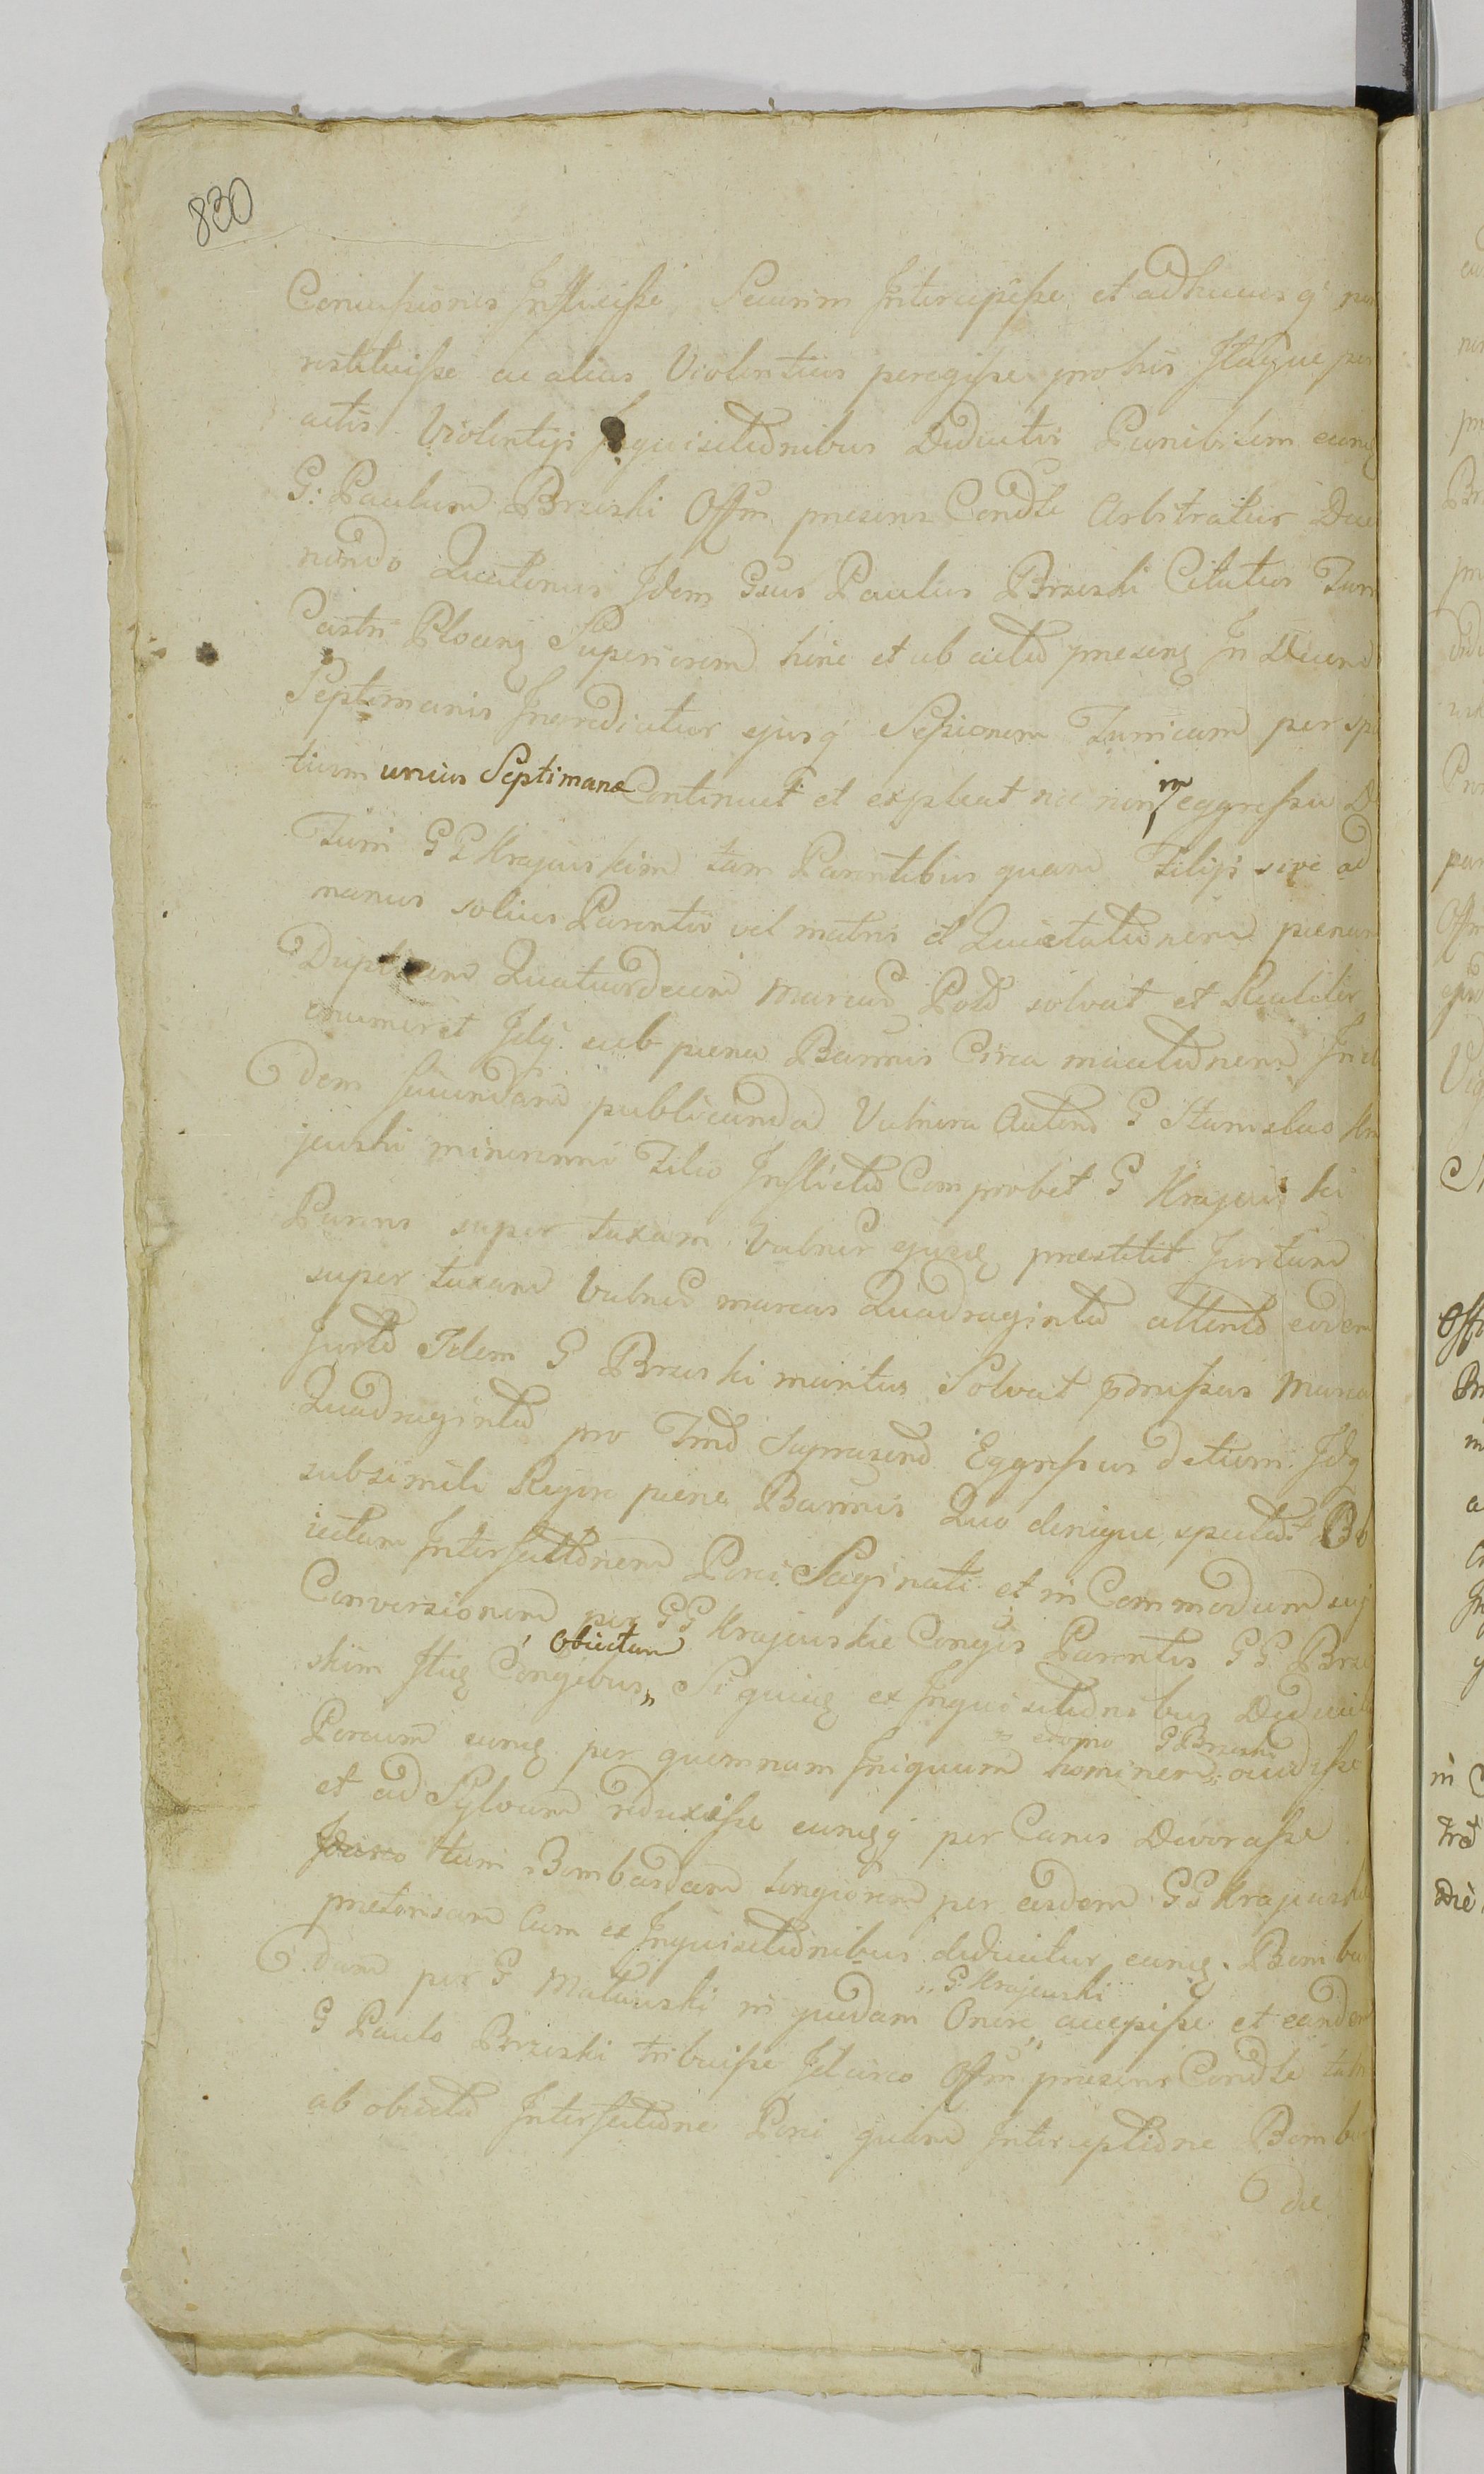 830
Concussiones Inflixisse Securim Intercepisse et adhucusq non
restituisse ac alias Violentias peregisse pro his Itaque per
actis Violentijs Inquisitionibus Deductis Punibilem eum
G: Paulum Brzeski Offm presens Condle Arbitratur Decer
nendo Quatenus Idem Gsus Paulus Brzeski Citatus Turri
Castri Plocen Superiorem hinc et ab actu presen In Decem
Septimanis Ingrediatur ejusq Sessionem Turricam per spa
tium unius Septimanæ Continuet et expleat nec non in eggressu De
Turri GG Krajewskim tam Parentibus quam Filijs sive ad
manus solius Parentis vel matris et Quietationem pænam
Duplicem Quatuordecim Marcas Pol solvat et Realiter
enumeret Idq sub pæna Bannis Circa mactationem In ea
dem Secundam publicanda Vulnera Autem G Stanislao Kra
jewski minorenni Filio Inflicta Comprobet G Krajewski
Parens super taxam Vulner ejus prestitit Jurtum
super taxam Vulner marcas Quadraginta attento eodem
Jurto Idem G Brzeski maritus Solvat pmissas Marcas
Quadraginta pro Tmo Suprascrip Eggressus de turri Idq
sub simili Rigore pæne Bannis Quo denique spectat Ob
iectam Interfectionem Porci Saginati et in Commodum suj
Conversionem per GG Krajewskie Conges Parentes GG Brze
skim Itiq Congibus „ Obiectam Siquidem ex Inquisitionibus Deducit
Porcum eum per quemnam Iniquum hominem „ e domo G Brzeski occidisse
et ad Sylvam reduxisse eumq per Canes Devorasse
Idcirco tum Bombardam longiorem per eosdem GG Krajewskie
pretensam Cum ex Inquisitionibus deducitur eam Bombar
dam per G Malewski in quodam Onere „ G Krajewski accepisse et eandem
G Paulo Brzeski tribuisse Idcirco Offm presens Condle tam
ab obiecta Interfectione Porci quam Interceptione Bombar
dæ